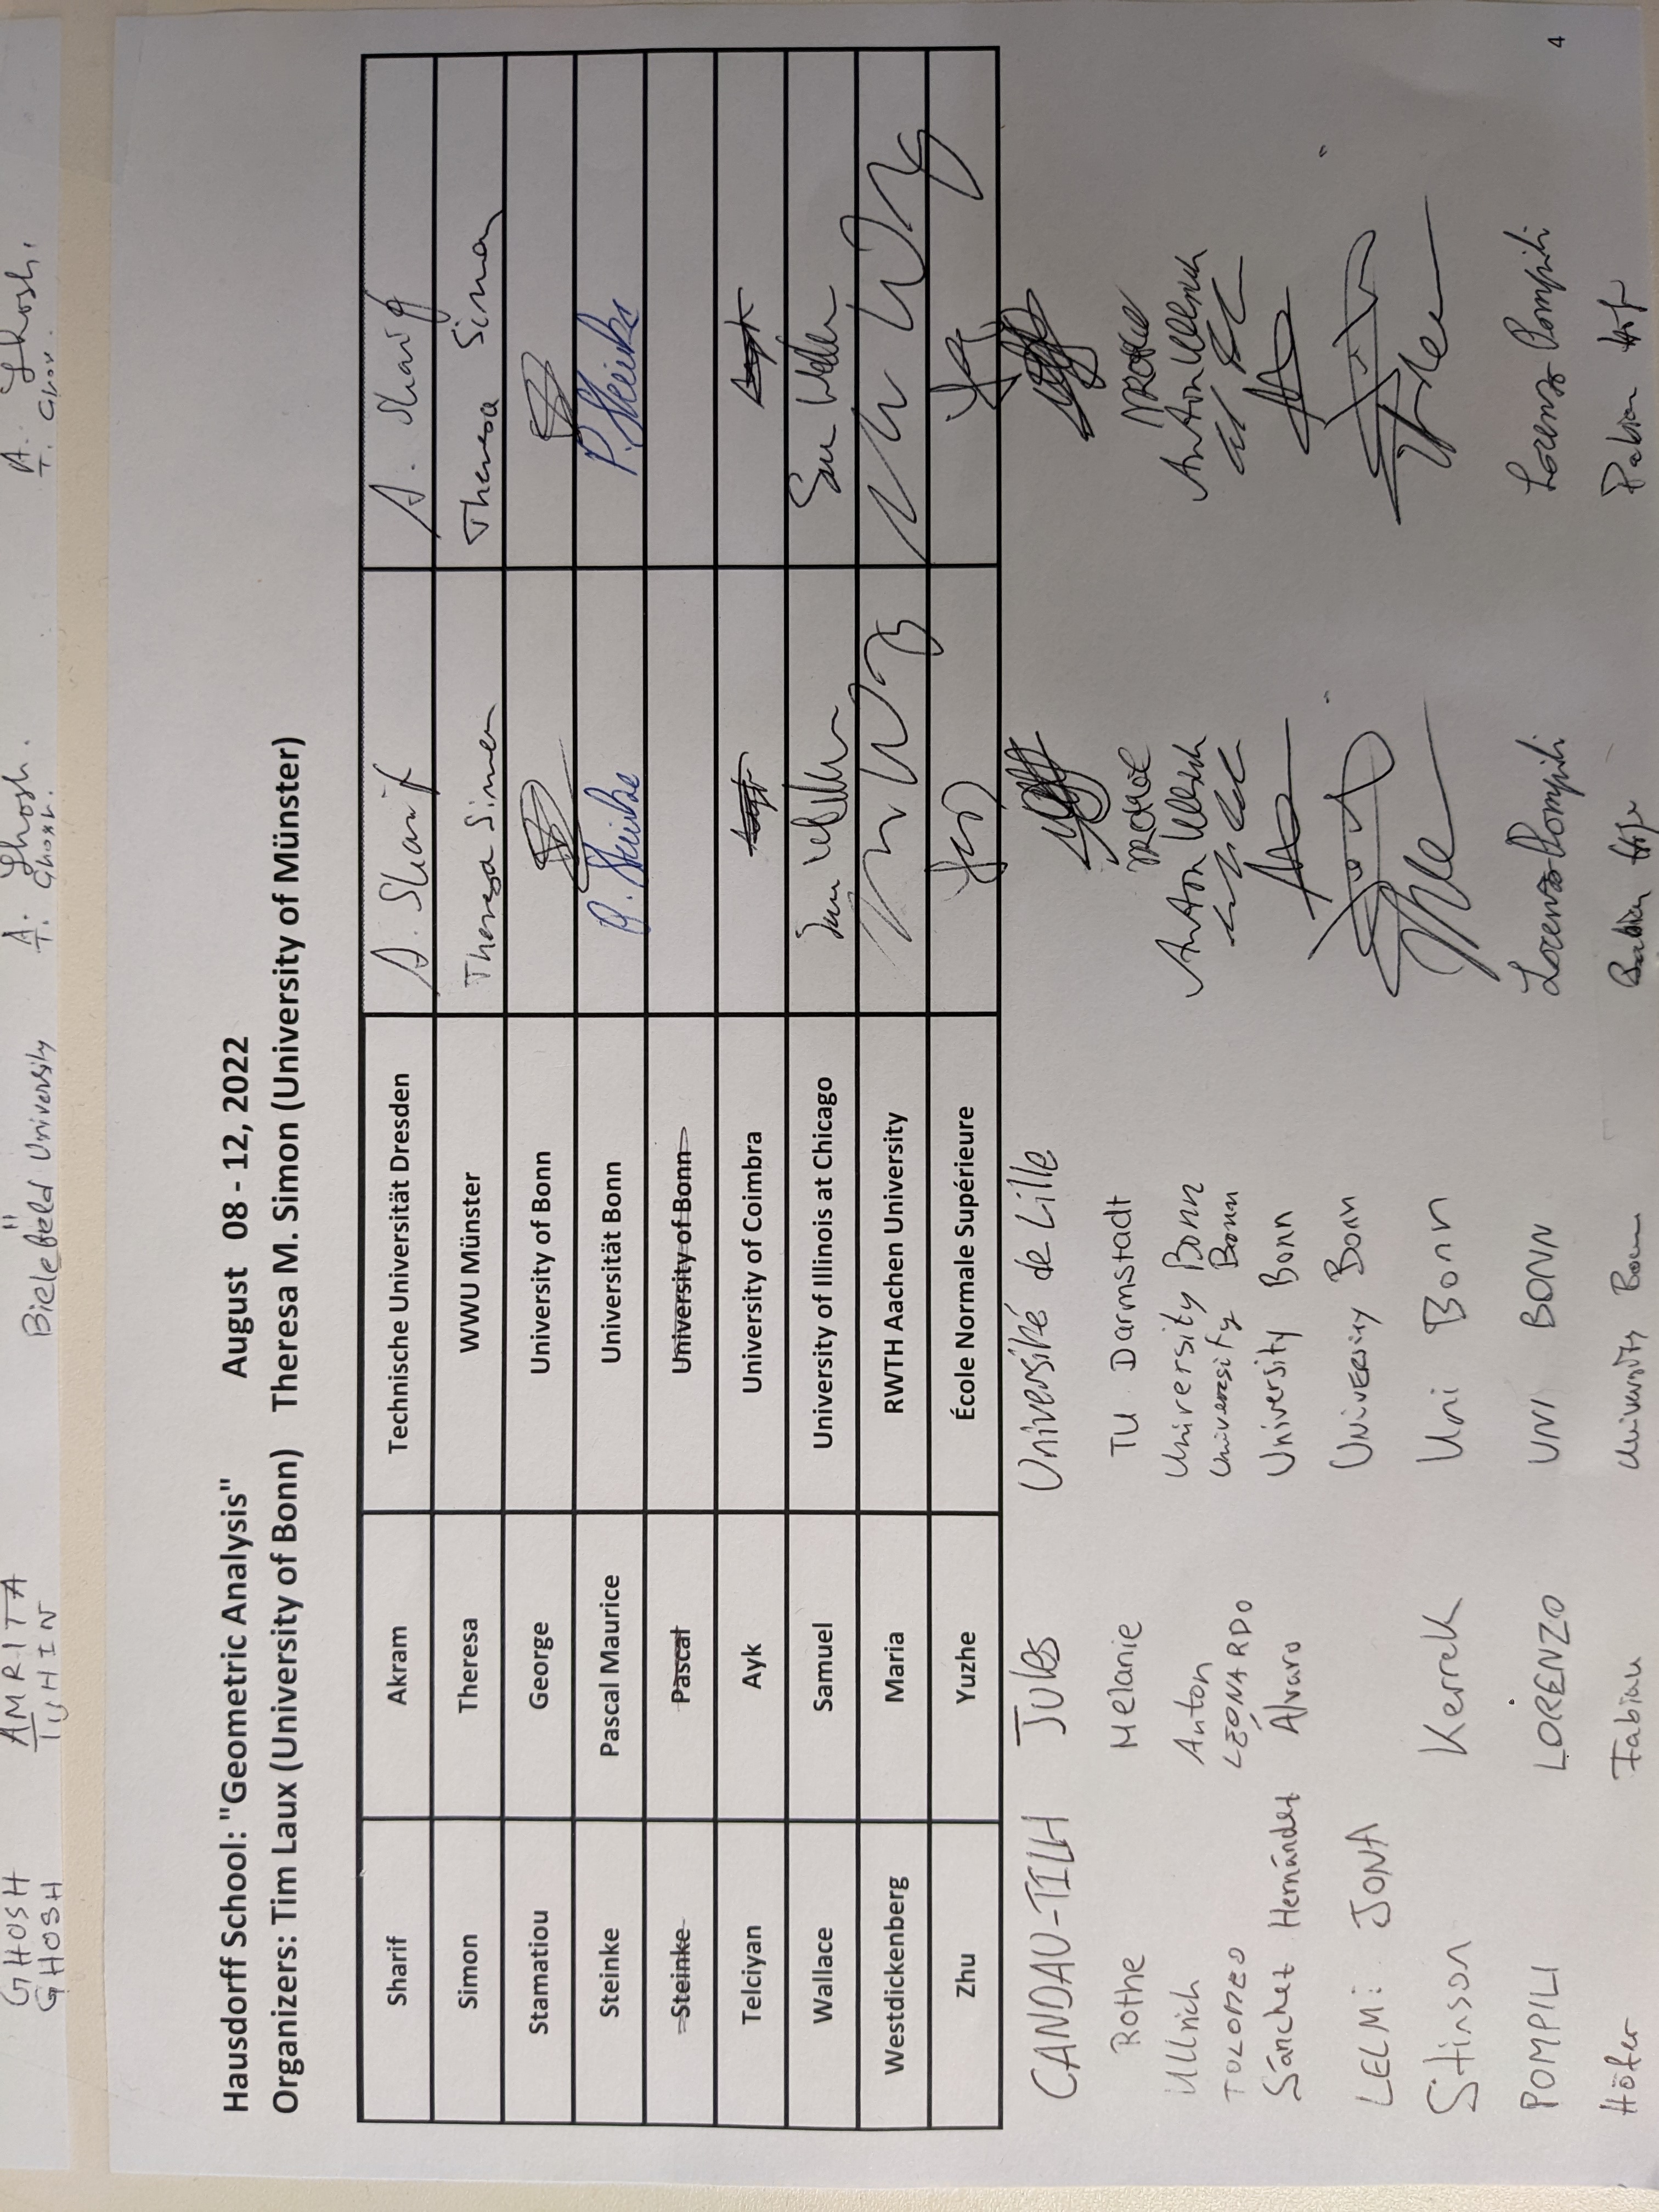 GHOSH AMRITA Bielefeld University A. Ghosh. A. Ghosh.
GHOSH TUHIN " T. Ghosh. T. Ghosh.
Hausdorff School: "Geometric Analysis" August 08 - 12, 2022
Organizers: Tim Laux (University of Bonn) Theresa M. Simon (University of Münster)
Sharif Akram Technische Universität Dresden A. Sharif A. Sharif
Simon Theresa WWU Münster Theresa Simon Theresa Simon
Stamatiou George University of Bonn
Steinke Pascal Maurice Universität Bonn P. Steinke P. Steinke
Steinke Pascal University of Bonn
Telciyan Ayk University of Coimbra
Wallace Samuel University of Illinois at Chicago Sam Wallace Sam Wallace
Westdickenberg Maria RWTH Aachen University
Zhu Yuzhe École Normale Supérieure
CANDAU-TILH Jules Université de Lille
Rothe Melanie TU Darmstadt MRothe MRothe
Ullrich Anton University Bonn Anton Ullrich Anton Ullrich
TOLOMEO LEONARDO University Bonn
Sánchez Hernández Álvaro University Bonn
LELMi JONA University Bonn
Stinson Kerrek Uni Bonn
POMPILI LORENZO UNI BONN Lorenzo Pompili Lorenzo Pompili
Höfer Fabian University Bonn Fabian Höfer Fabian Höfer
4